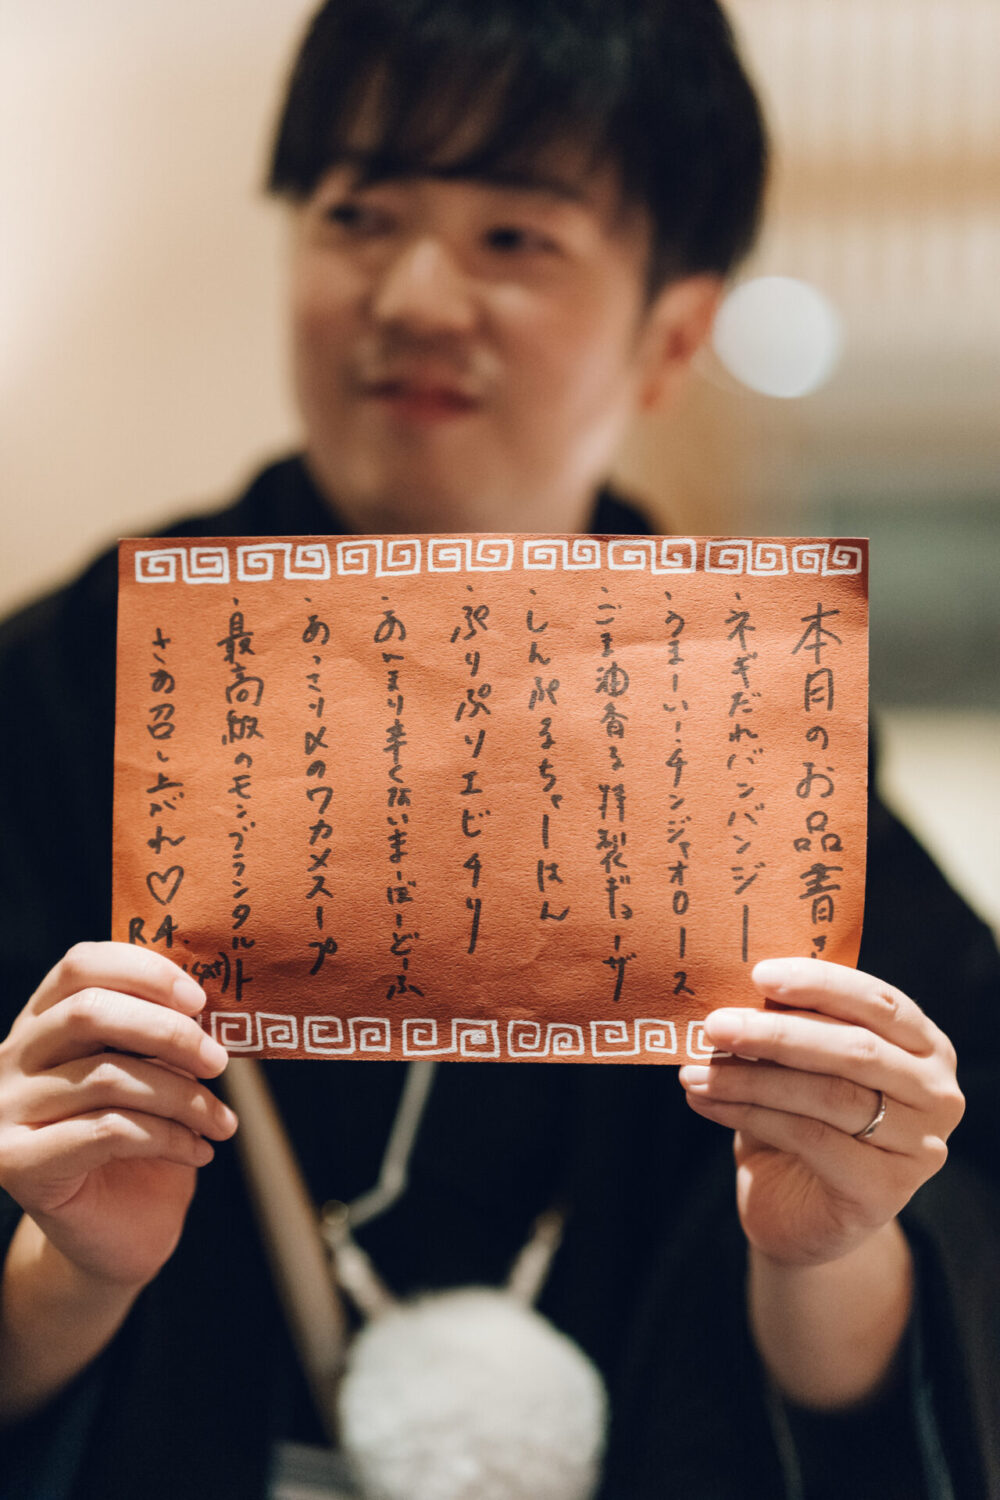 本日のお品書き
・ネギだれバンバンジー
・うまーい！チンジャオロース
・ごま油香る特製ギョーザ
・しんぷるちゃーはん
・ぷりぷりエビチリ
・あんまり辛くないまーぼーどーふ
・あっさり〆のワカメスープ
・最高級のモンブランタルト
さあ召し上がれ♡
R.4.